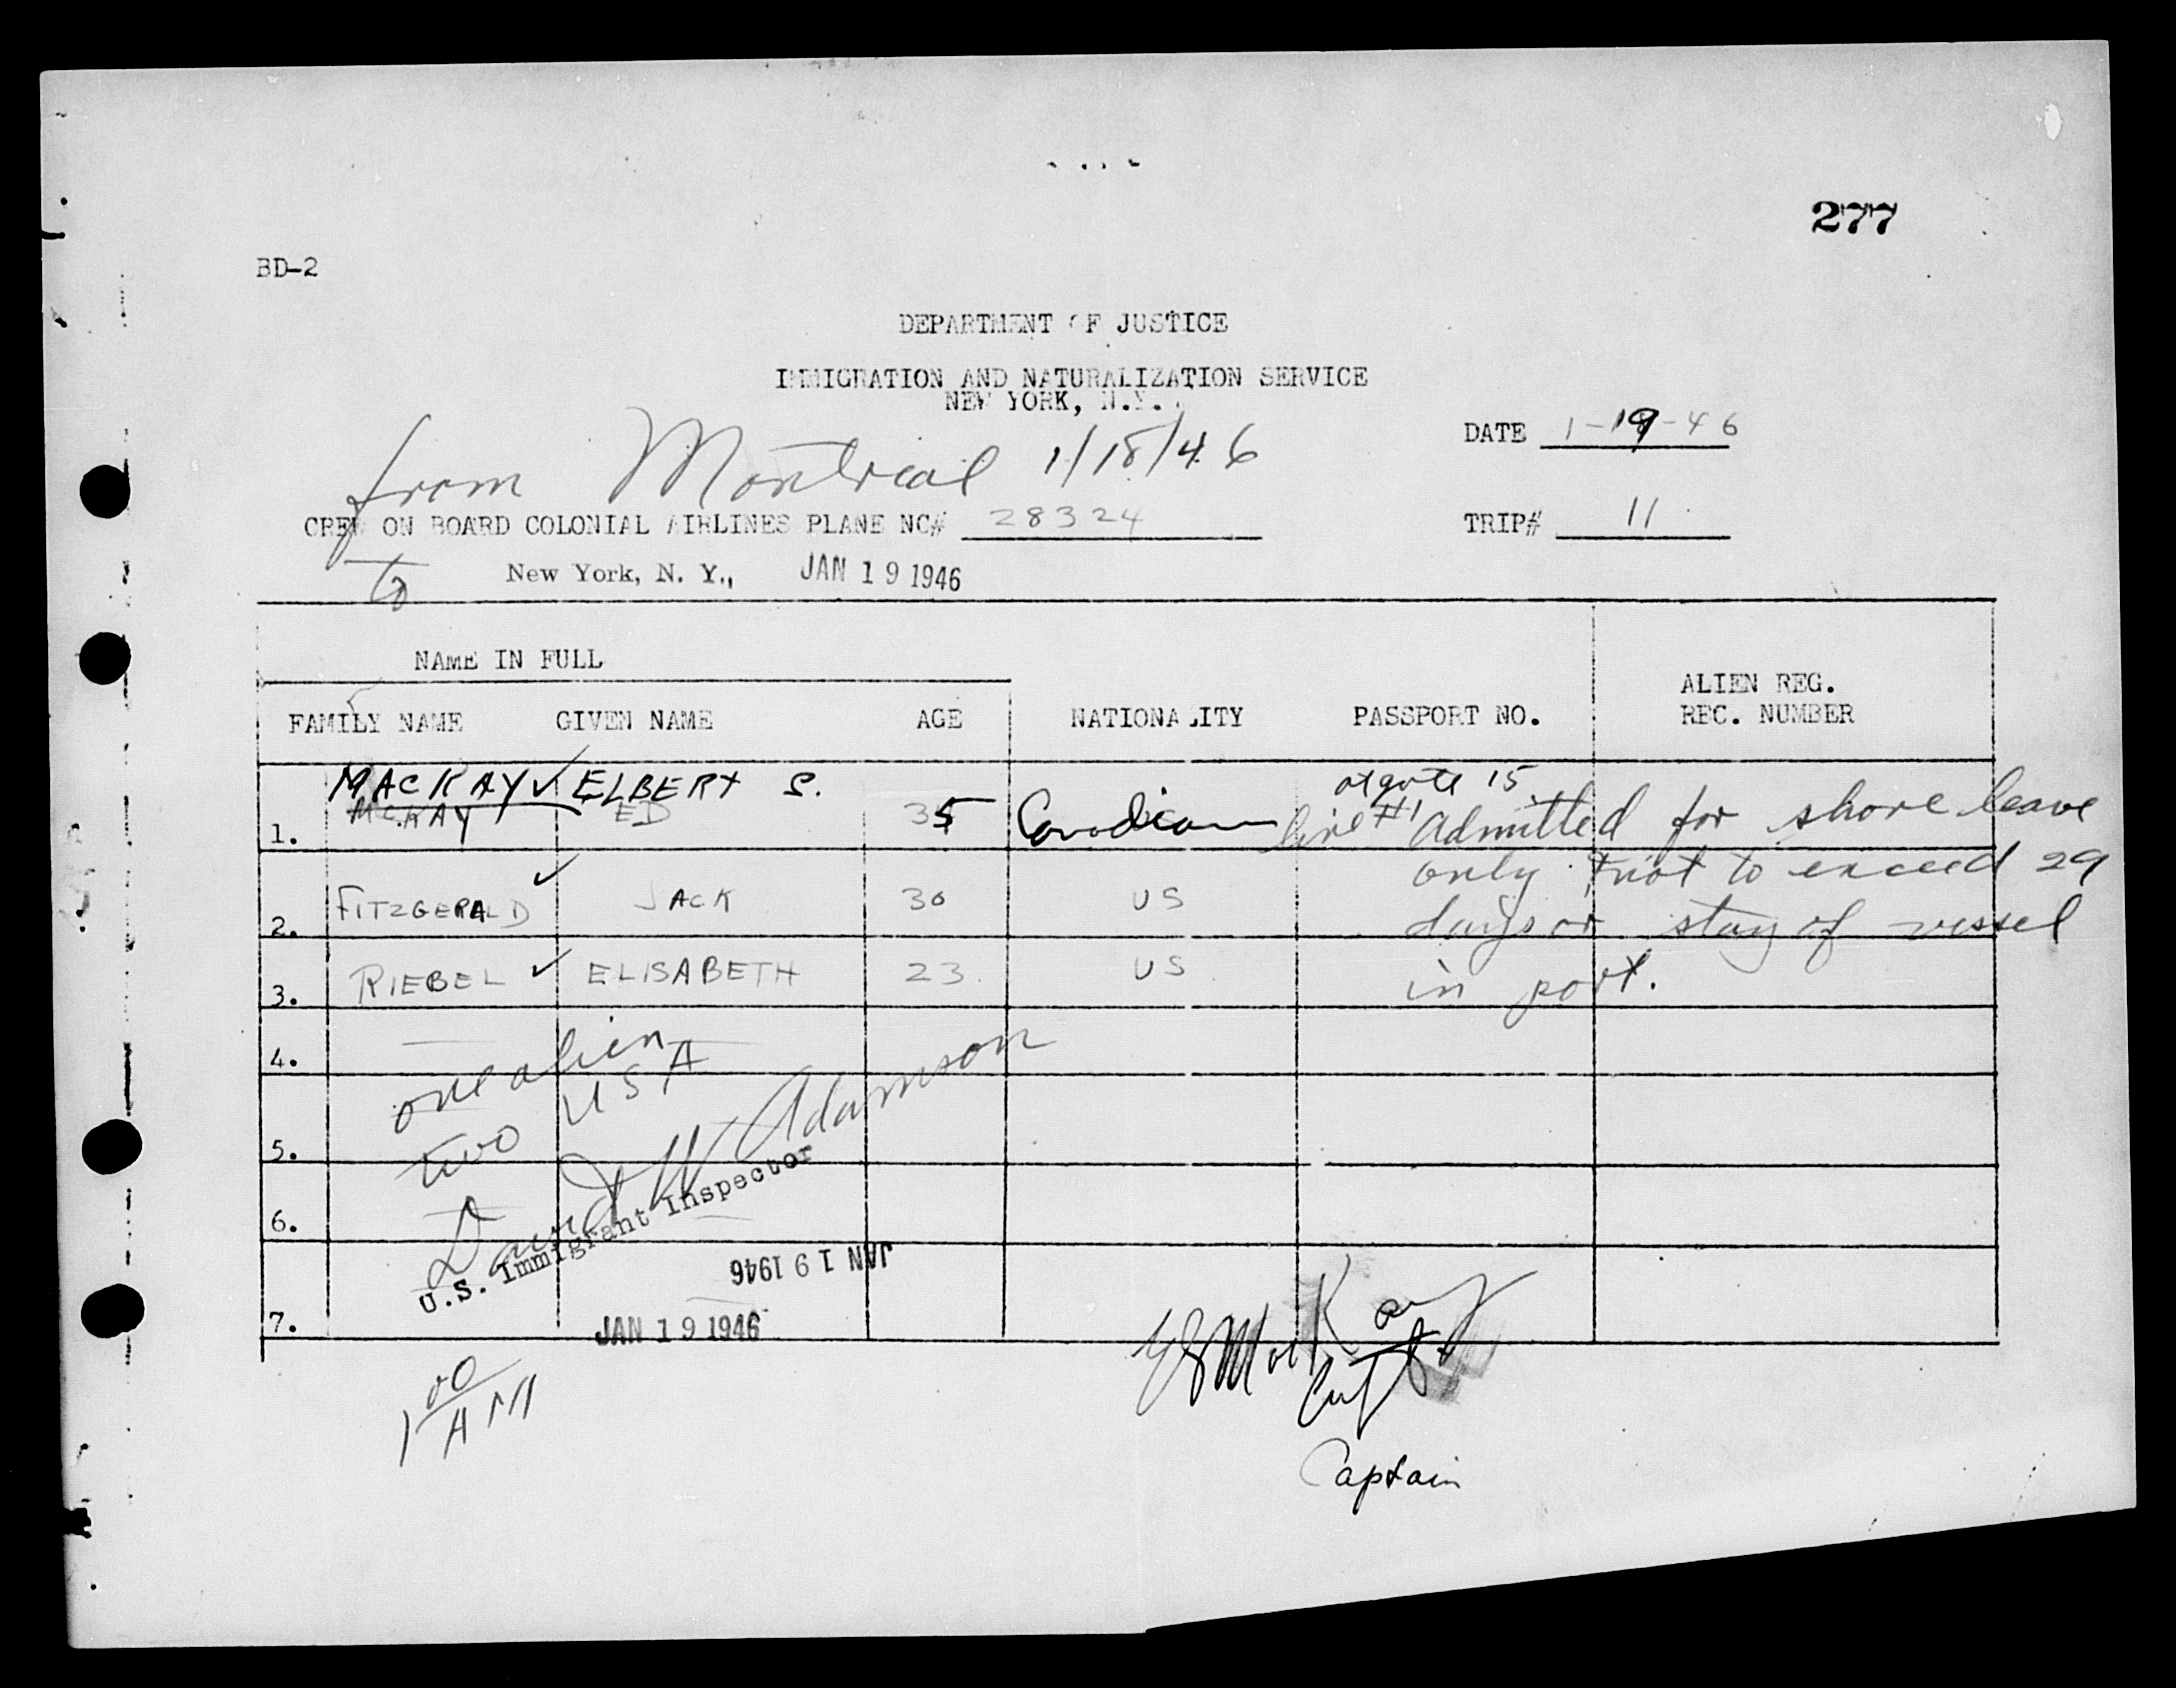 277
BD-2
DEPARTMENT OF JUSTICE
IMMIGRATION AND NATURALIZATION SERVICE
NEW YORK, N.Y.
DATE 1-19-46
from Montreal 1/18/46
CREW ON BOARD COLONIAL AIRLINES PLANE NC# 28324
TRIP# 11
to New York, N. Y., JAN 19 1946
NAME IN FULL
FAMILY NAME GIVEN NAME AGE NATIONALITY PASSPORT NO. ALIEN REG. REC. NUMBER
MACKAY ✓ ELBERT S. at gate 15
1. McKAY ED 35 Canadian line #1 Admitted for shore leave
only & not to exceed 29
2. FITZGERALD ✓ JACK 30 US days or stay of vessel
3. RIEBEL ✓ ELISABETH 23 US in port.
4.
one alien
two USA
5.
David W Adamson
U.S. Immigrant Inspector
6.
JAN 19 1946
7.
JAN 19 1946
ES MacKay
Capt
1 00 AM
Captain